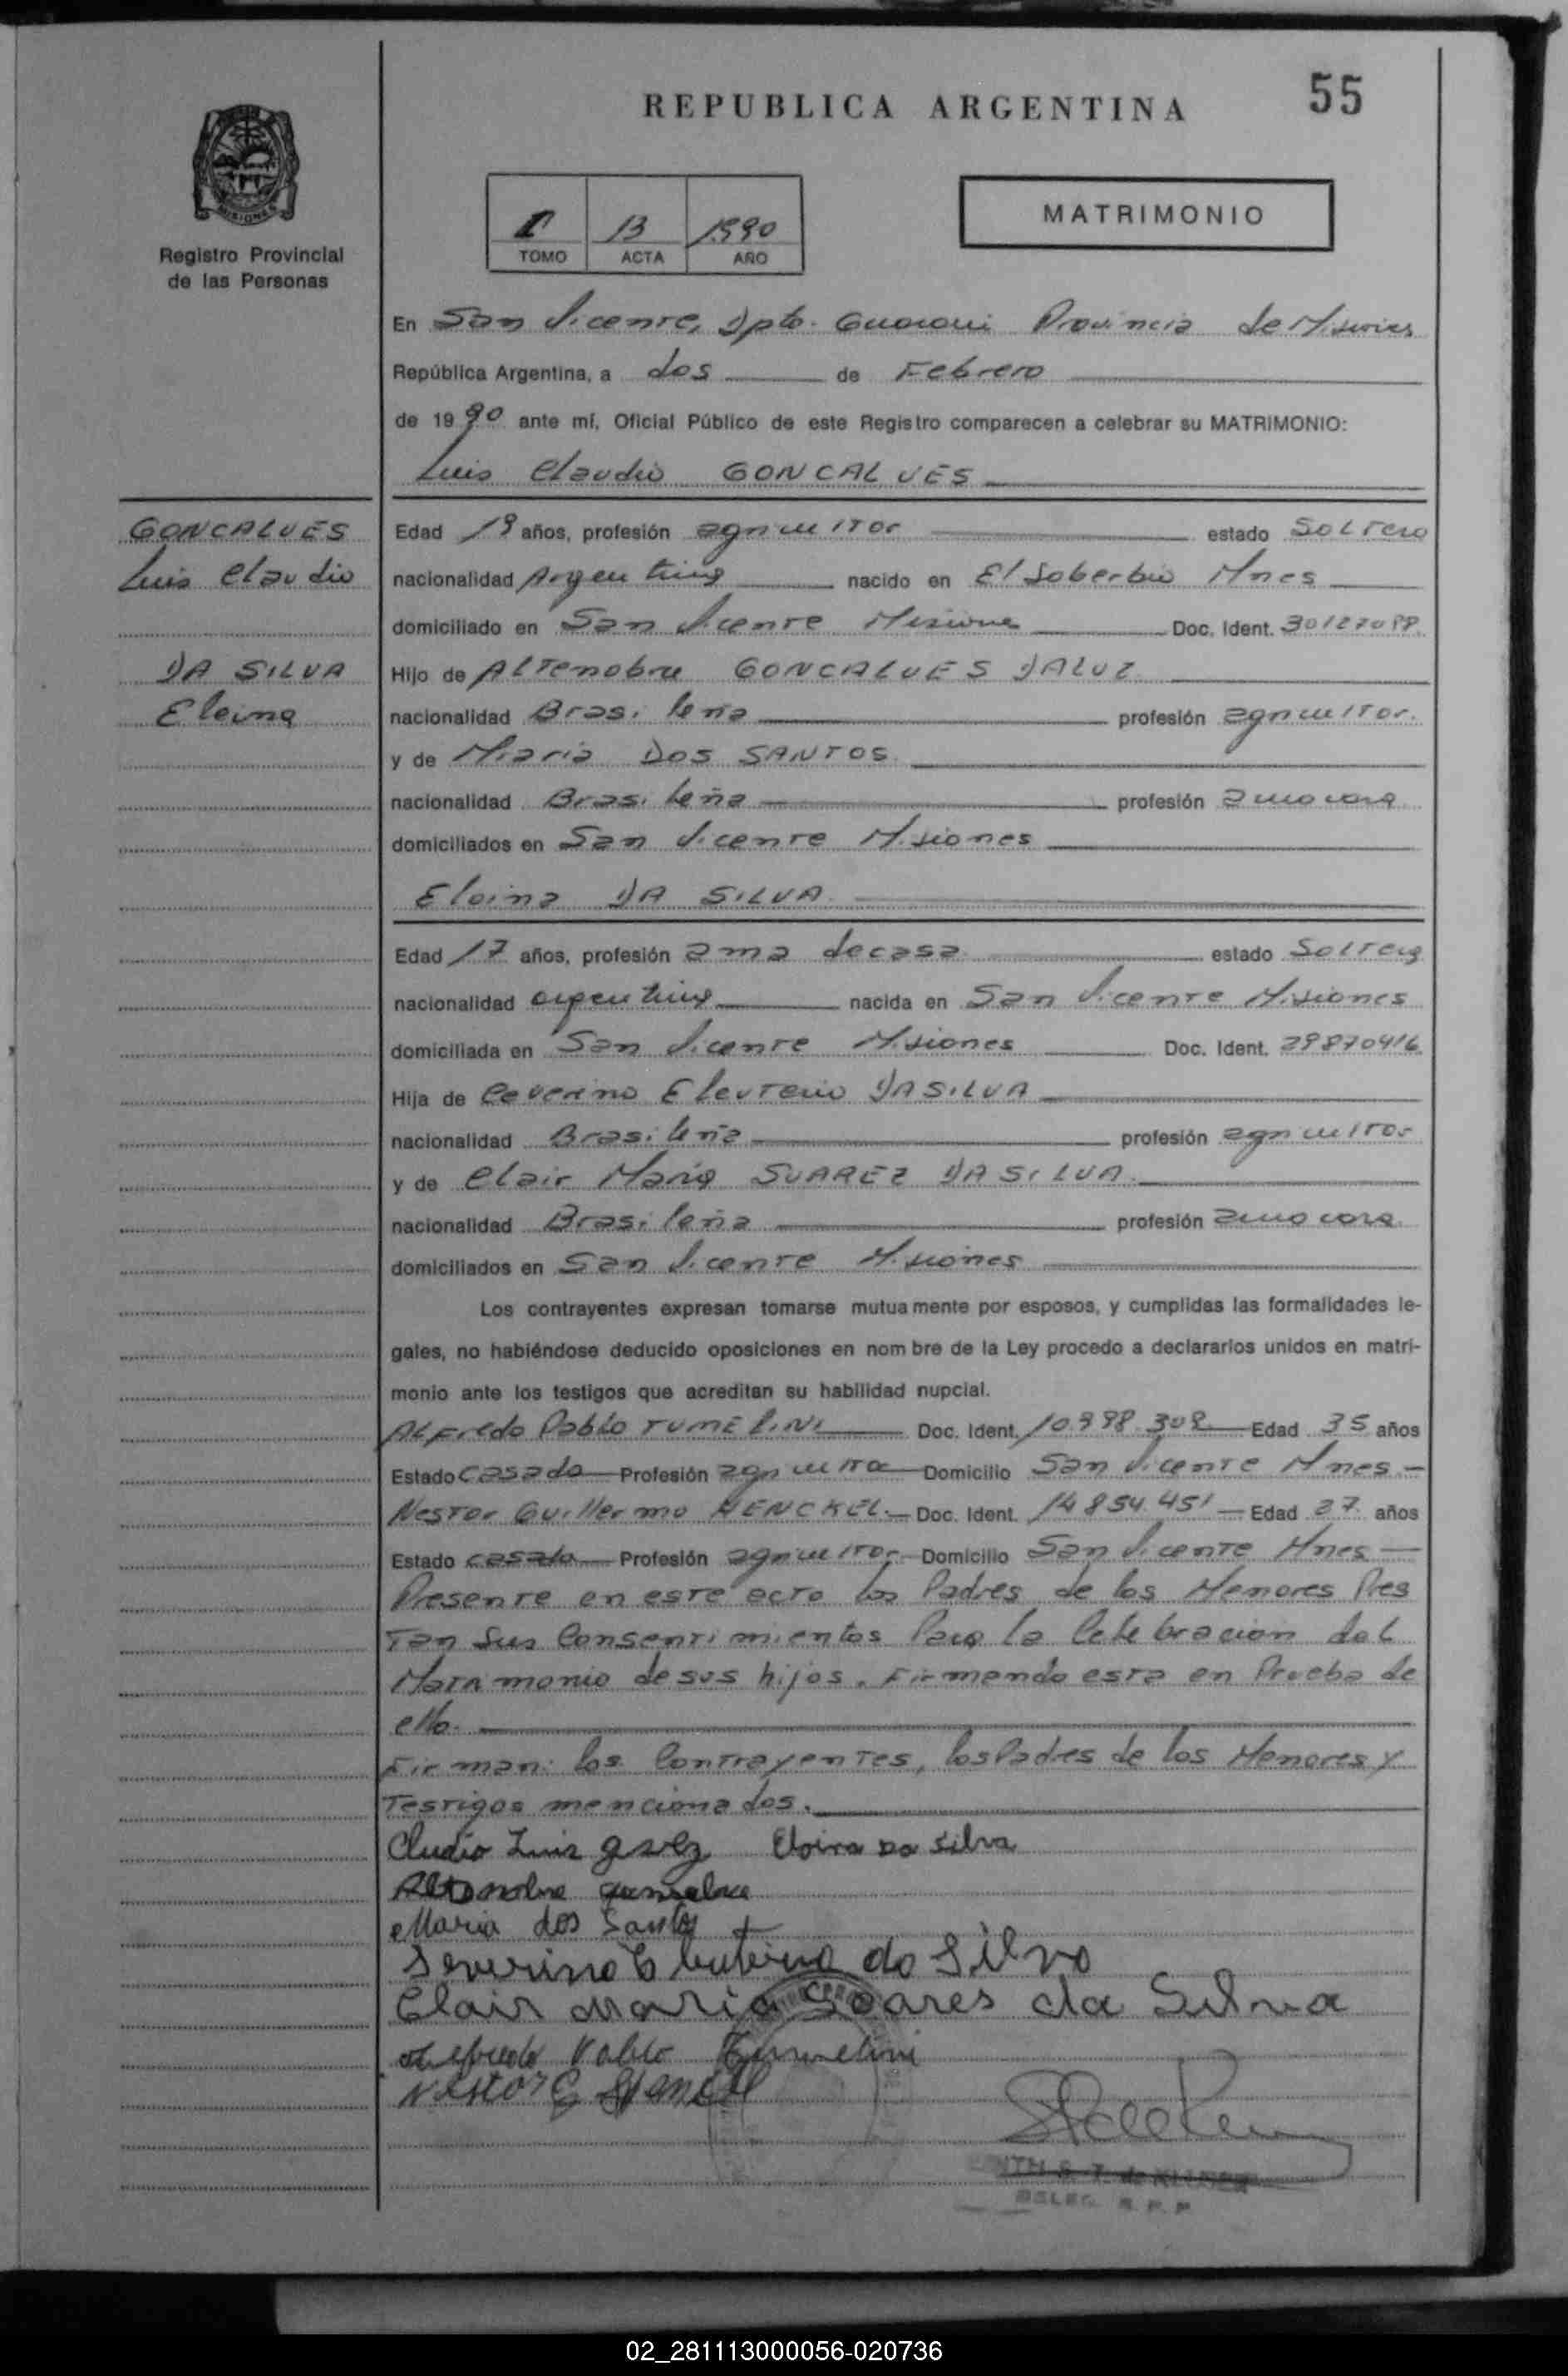 55
REPUBLICA ARGENTINA
MISIONES
Registro Provincial
de las Personas
13 1990
TOMO ACTA AÑO
MATRIMONIO
En San Vicente, Dpto. Guarani Provincia de Misiones
República Argentina, a dos de Febrero
de 1990 ante mí, Oficial Público de este Registro comparecen a celebrar su MATRIMONIO:
Luis Claudio GONCALVES
GONCALVES
Luis Claudio
DA SILVA
Eloina
Edad 19 años, profesión agricultor estado Soltero
nacionalidad Argentina nacido en El Soberbio Mnes
domiciliado en San Vicente Misiones Doc. Ident.
Hijo de Altenobre GONCALVES DALUZ
nacionalidad Brasileña profesión agricultor.
y de Maria DOS SANTOS
nacionalidad Brasileña profesión
domiciliados en San Vicente Misiones
Eloina DA SILVA
Edad 17 años, profesión ama de casa estado Soltera
nacionalidad argentina nacida en San Vicente Misiones
domiciliada en San Vicente Misiones Doc. Ident. 29870416
Hija de Ceverino Eleuterio DA SILVA
nacionalidad Brasileña profesión agricultor
y de Clair Maria SUAREZ DA SILVA
nacionalidad Brasileña profesión
domiciliados en San Vicente Misiones
Los contrayentes expresan tomarse mutuamente por esposos, y cumplidas las formalidades le-
gales, no habiéndose deducido oposiciones en nombre de la Ley procedo a declararlos unidos en matri-
monio ante los testigos que acreditan su habilidad nupcial.
Alfredo Pablo TUMELINI Doc. Ident. 10.998.302 Edad 35 años
Estado Casado Profesión agricultor Domicilio San Vicente Mnes
Nestor Guillermo HENCKEL Doc. Ident. 14.854.451 Edad 27 años
Estado casado Profesión agricultor Domicilio San Vicente Mnes
Presente en este acto los Padres de los Menores Pres
tan Sus Consentimientos Para la Celebracion del
Matrimonio de sus hijos. Firmando esta en Prueba de
ello.
Firman: los Contrayentes, los Padres de los Menores y
Testigos mencionados.
Cludio Luiz Eloina Da Silva
Maria dos Santos
Severino Eleuterio da Silva
Clair Maria Soares da Silva
Alfredo Pablo Tumelini
Nestor G Henckel
DELEG. R. P. P.
02_281113000056-020736